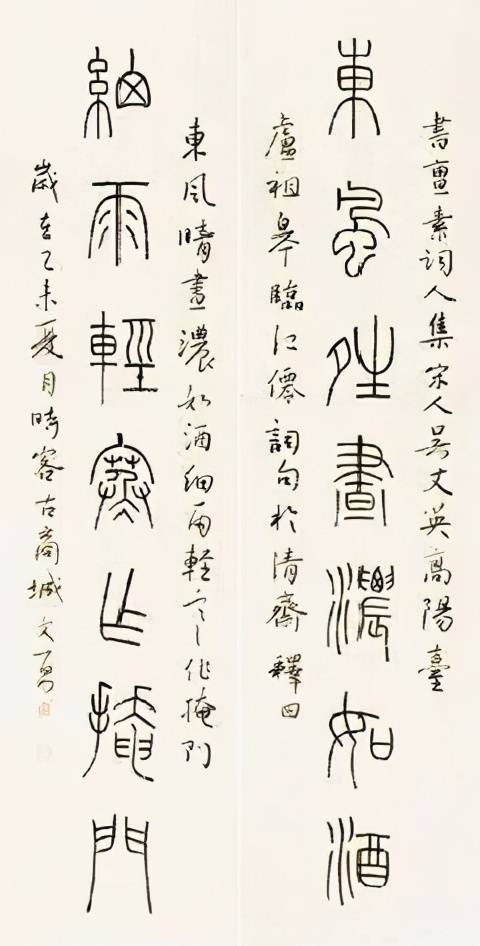 書亶素詞人集宋人吳文英高陽臺
東風晴晝濃如酒
盧祖皋臨江僊詞句於清齋釋曰
東風晴晝濃如酒細雨輕寒乍掩門
細雨輕寒乍掩門
歲在乙未夏月時客古商城文勇